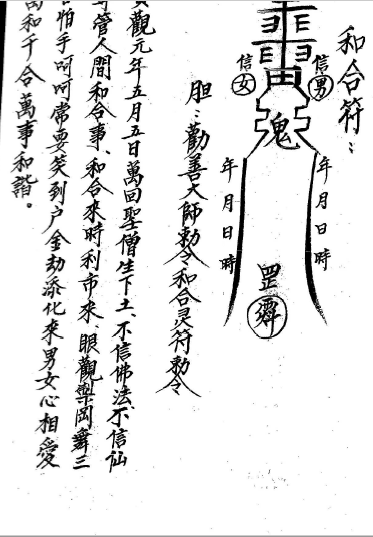 和合符：
信男
年月日時
信女
年月日時
田
鬼
罡
胆：勸善大師勅令和合灵符勅令
觀元年五月五日萬回聖僧生下土、不信佛法、不信仙
管人間和合事、和合來時利市來、眼觀
怕手呵呵常要笑到户金劫添化來男女心相愛
和千合萬事和諧。